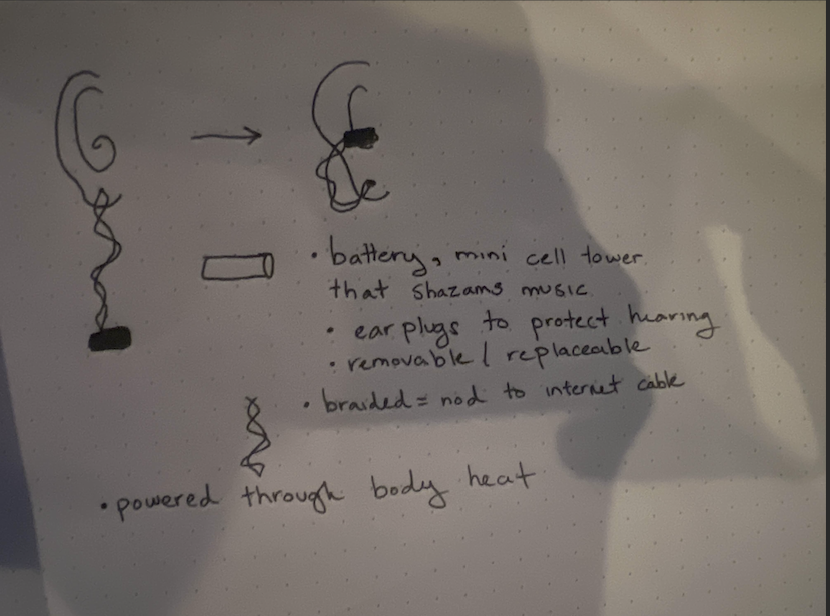 • battery, mini cell tower
that shazams music
• ear plugs to protect hearing
• removable / replaceable
• braided = nod to internet cable
• powered through body heat